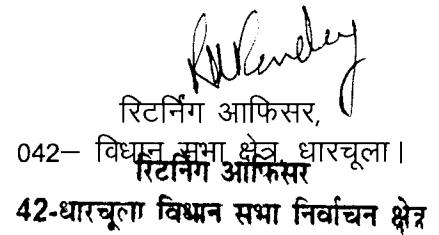 रिटर्निंग आफिसर,
042– विधान सभा क्षेत्र, धारचूला।
रिटर्निंग आफिसर
42-धारचूला विधान सभा निर्वाचन क्षेत्र